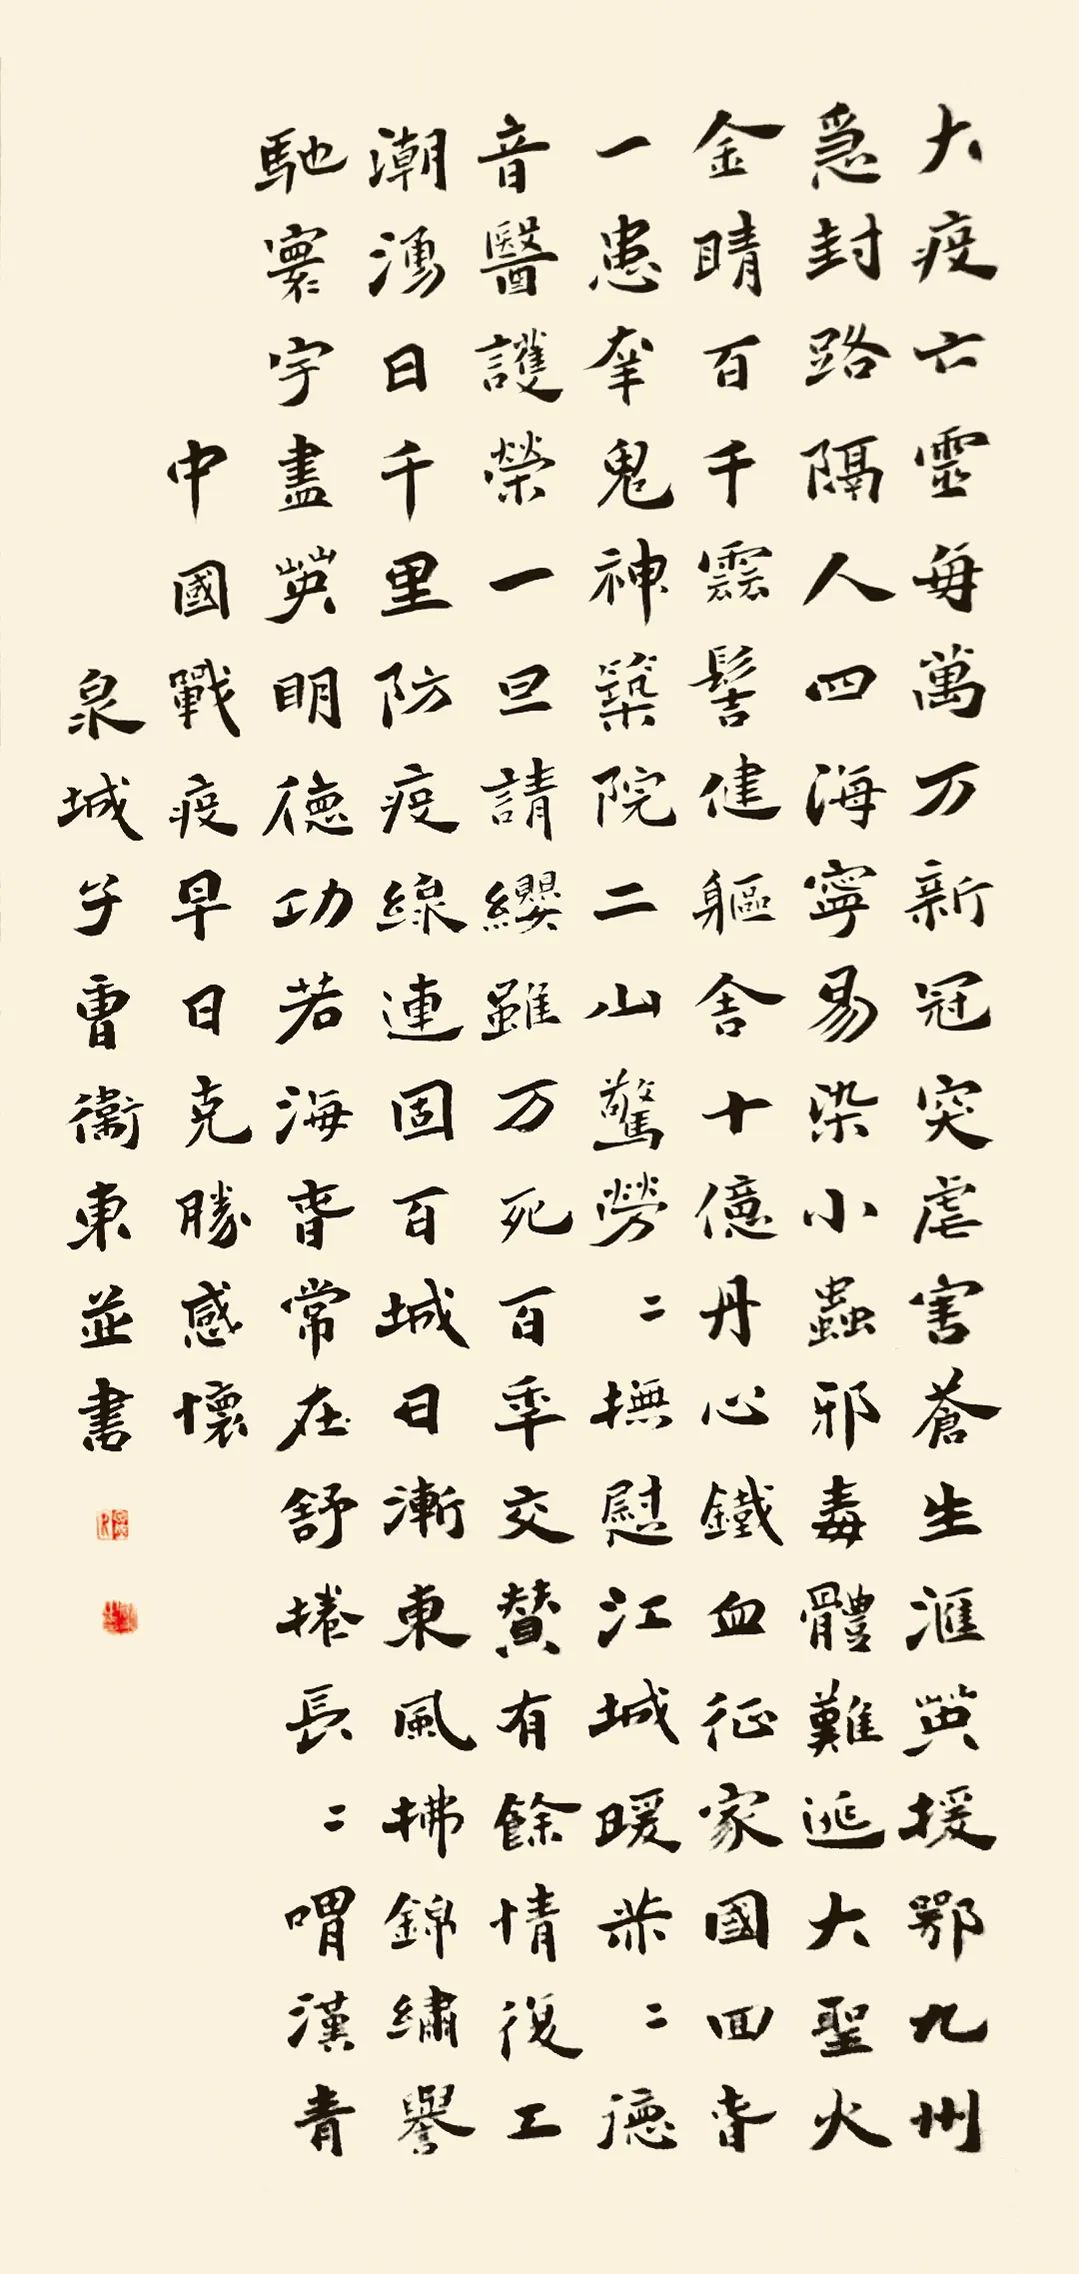 大疫亡靈每萬万新冠突虐害蒼生滙英援鄂九州
急封路隔人四海寧易染小蟲邪毒體難逃大聖火
金睛百千雲髻健軀舍十億丹心鐵血征家國回春
一患牽鬼神築院二山驚勞〻撫慰江城暖恭〻德
音醫護榮一旦請纓雖万死百年交贊有餘情復工
潮湧日千里防疫線連固百城日漸東風拂錦繡譽
馳寰宇盡英明德功若海春常在舒捲長〻喟漢青
中國戰疫早日克勝感懷
泉城子曹衛東並書